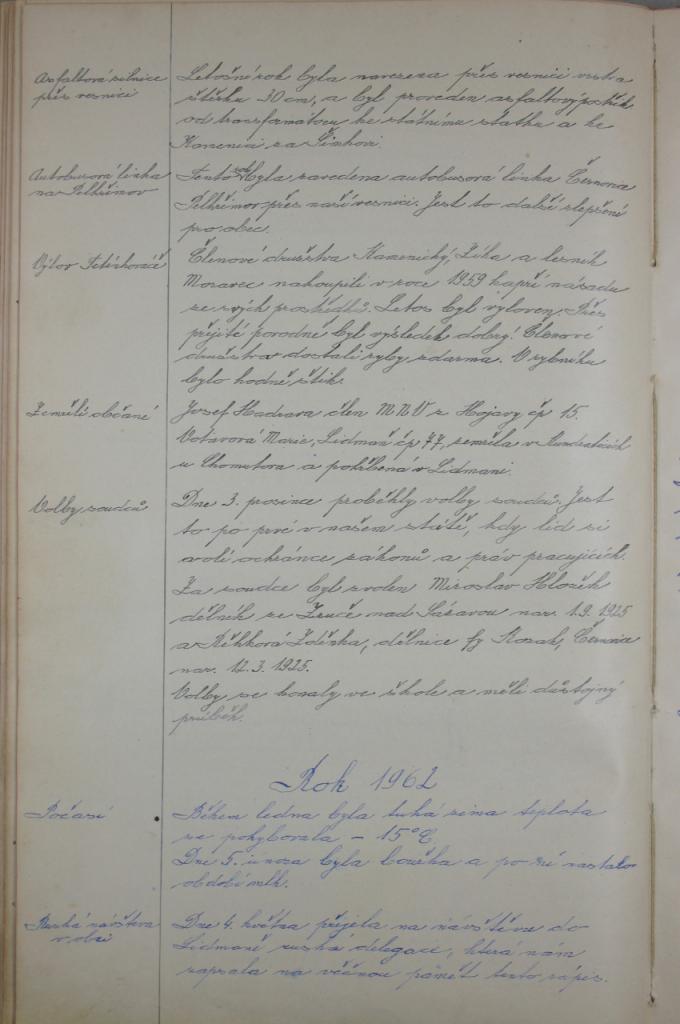 Asfaltová silnice
přes vesnici
Letošní rok byla navezena přes vesnici vrstva
štěrku 30 cm, a byl proveden asfaltový postřik
od transformátoru ke státnímu statku a ke
Kamenici za Šimkovi.
Autobusová linka
na Pelhřimov
Tento rok byla zavedena autobusová linka Černovice
Pelhřimov přes naší vesnici. Jest to další zlepšení
pro obec.
Výlov
Členové družstva Kamenický, Líka a lesník
Moravec nakoupili v roce 1959 kapří násadu
ze svých prostředků. Letos byl vyloven. Přes
přejité povodně byl výsledek dobrý! Členové
družstva dostali ryby zdarma. V rybníku
bylo hodně štik.
Zemřelí občané
Josef Hadrava člen MNV z Hojovy čp 15.
Votavová Marie, Lidmaň čp 77, zemřela v
u Chomutova a pohřbená v Lidmani.
Volby soudců
Dne 3. prosince proběhly volby soudců. Jest
to po prvé v našem státě, kdy lid si
volí ochránce zákonů a práv pracujících.
Za soudce byl zvolen Miroslav Hložek
dělník ze Zruče nad Sázavou nar. 1.9. 1925
a Zděnka, dělnice fy Kozak, Černovice
nar. 12.3. 1925.
Volby se konaly ve škole a měli důstojný
průběh.
Rok 1962
Počasí
Během ledna byla tuhá zima teplota
se pohybovala - 15°C.
Dne 5. února byla bouřka a po ní nastalo
období mlh.
Ruská návštěva
v obci
Dne 4. května přijela na návštěvu do
Lidmaně ruská delegace, která nám
zapsala na věčnou pamět tento zápis.